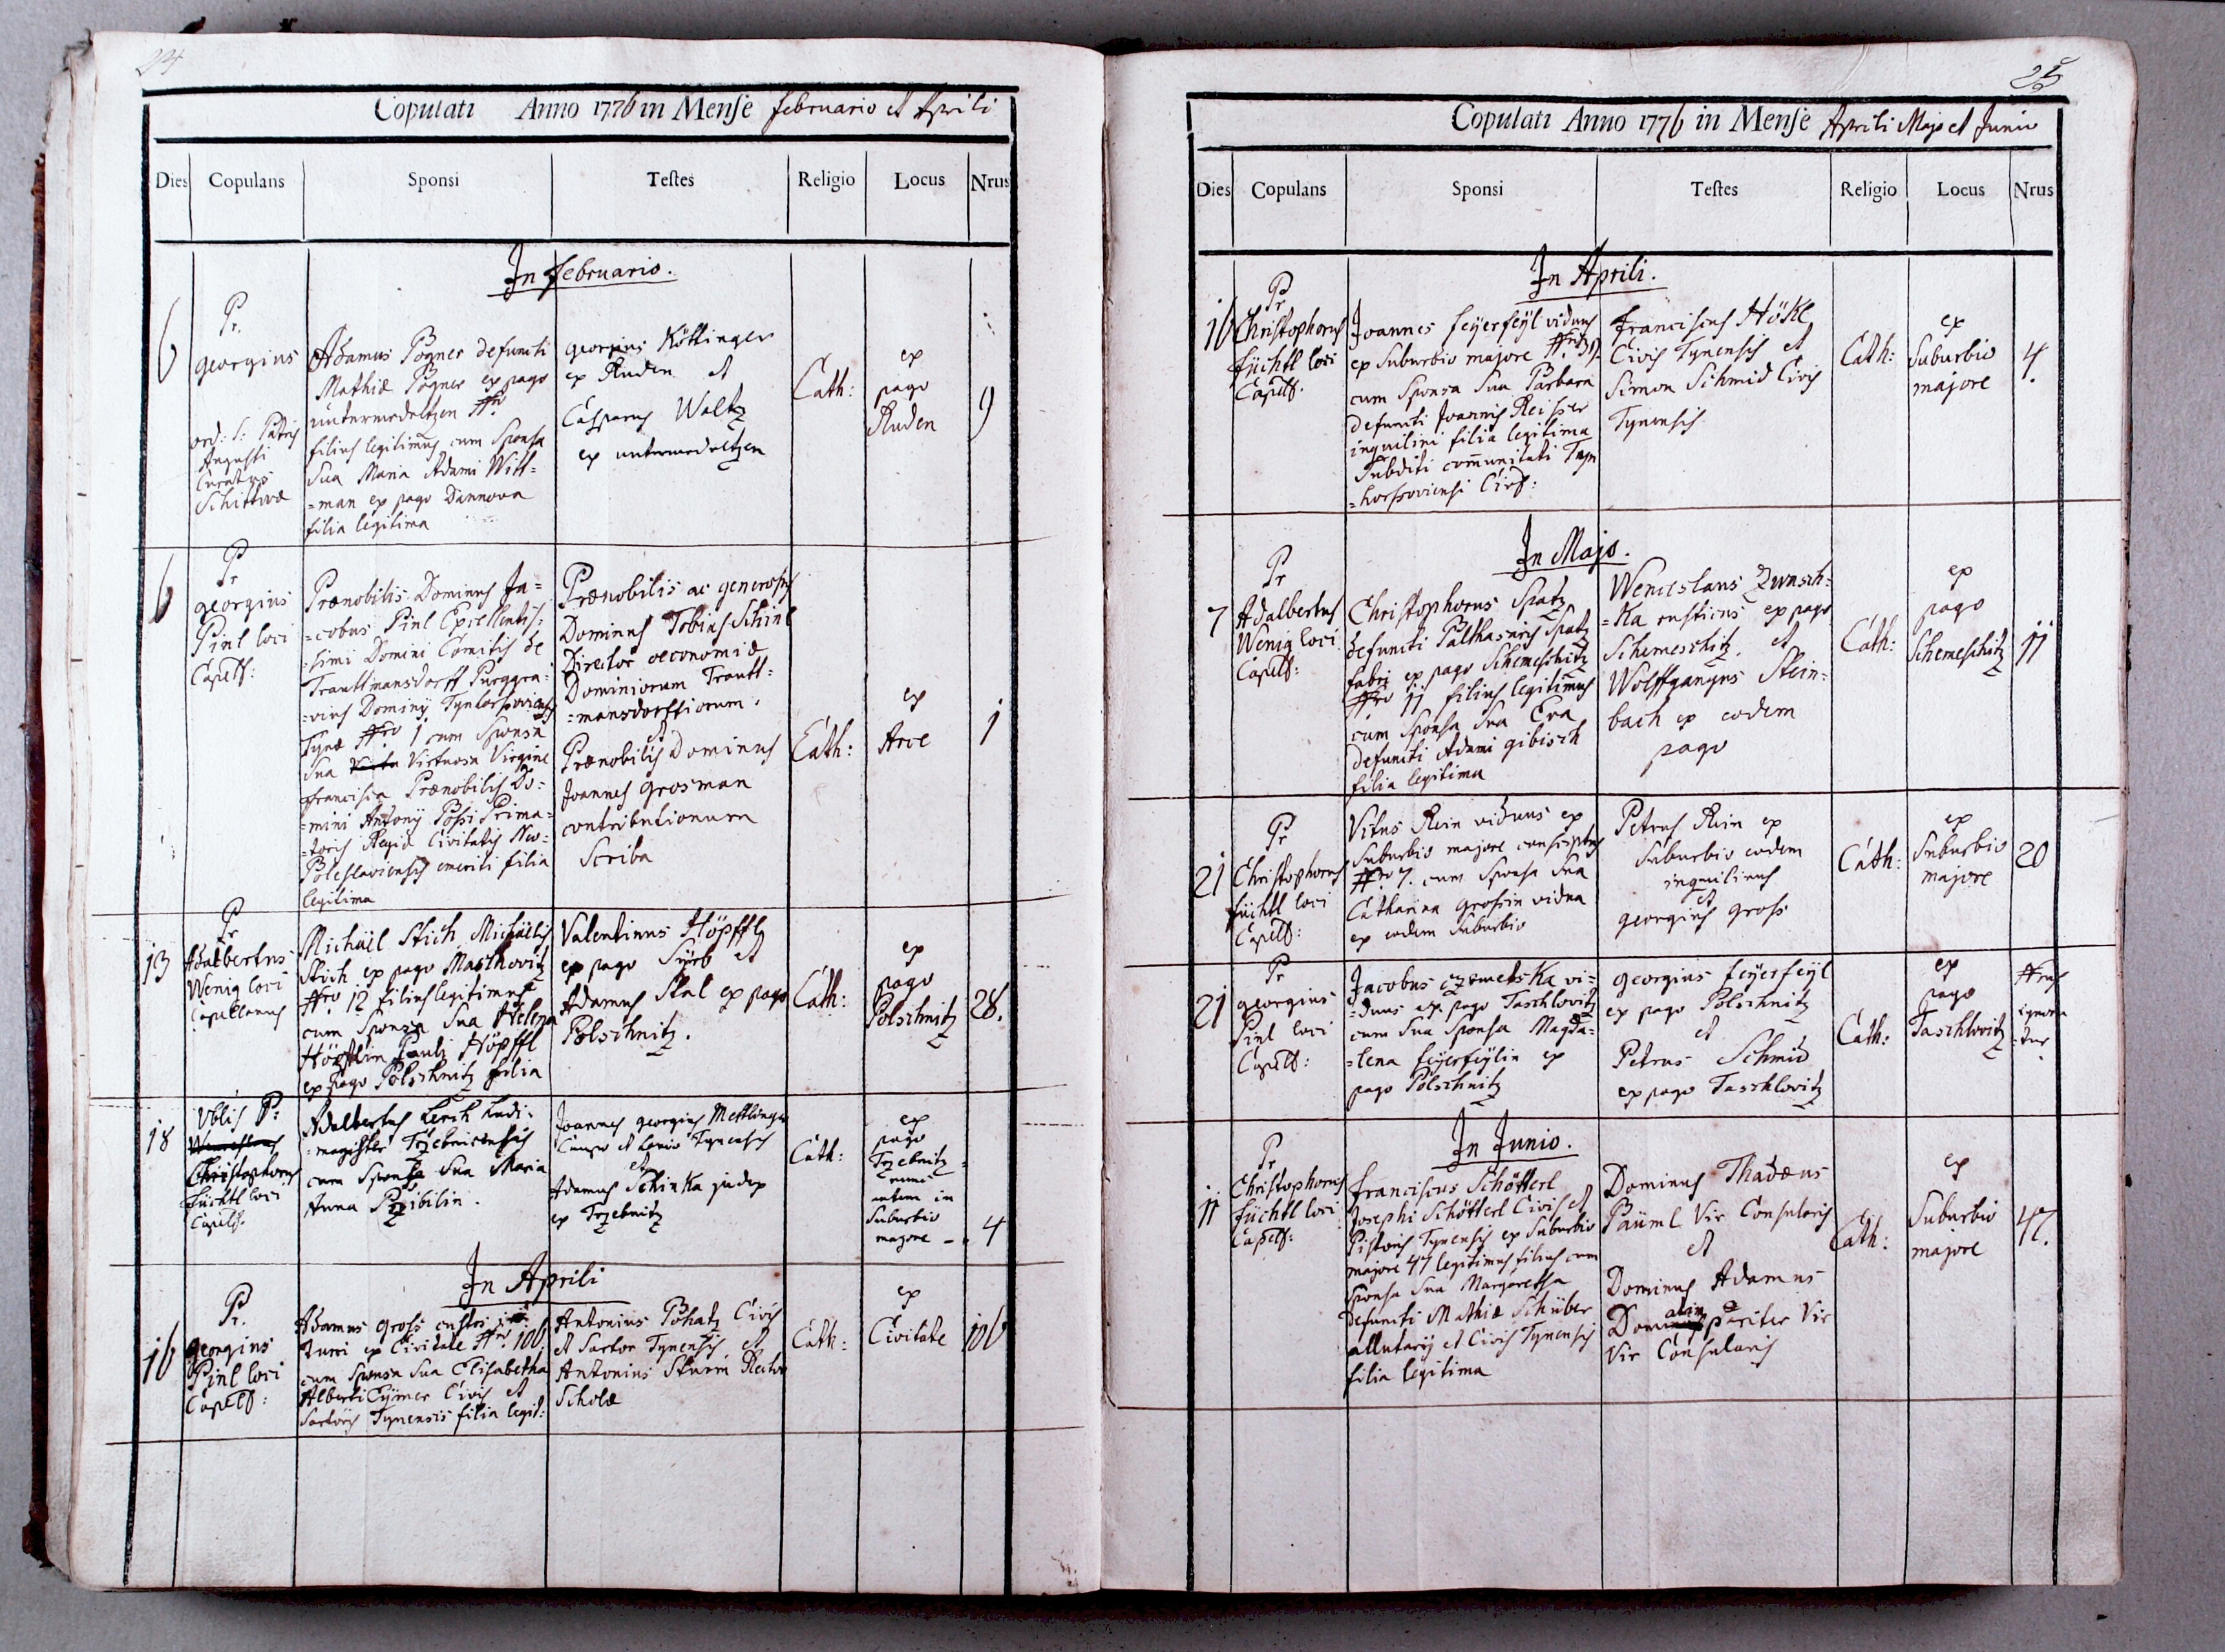 24
Copulati Anno 1776 in Mense februario et Aprili
Dies Copulans Sponsi Testes Religio Locus Nrus
In februario.
6
Pr.
georgius
ord: S: Patris
Augusti
Curatus
Schittwæ
Adamus Pogner defuncti
Mathiæ Pogner ex pago
untermedeltzen Nro
filius legitimus cum Sponsa
Sua Maria Adami Witt=
=man ex pago Dannova
filia legitima
georgius Köttinger
ex Ruden et
Casparus Waltz
ex untermedeltzen
Cath:
ex
pago
Ruden
9
6
Pr
georgius
Pinl loci
Capell:
Prænobilis Dominus Ja=
=cobus Pinl Excellentis:
=simi Domini Comitis de
Trauttmansdorff Purggra=
=vius Dominy
Tynæ Nro 1 cum Sponsa
Sua Virtuosa Virgine
francisca Prænobilis Do=
=mini Antony Possi Prima=
=toris Regiæ Civitatis Neo=
Poleslaviensis emeriti filia
legitima
Prænobilis ac generosus
Dominus Tobias Schinl
Director oeconomiæ
Dominiorum Trautt=
=mansdorffiorum.
et
Prænobilis Dominus
Joannes Grosman
contributionum
Scriba
Cath:
ex
Arce
1
13
Pr
Adalbertus
Wenig loci
Capellanus
Michael Stich Michaelis
Stich ex pago Maschovitz
Nro 12 filius legitimus
cum Sponsa Sua Helena
Höpfflin Pauli Höpffl
ex pago Polschnitz filia
Valentinus Höpffl
ex pago Sirb et
Adamus Stal ex pago
Polschnitz.
Cath:
ex
pago
Polschnitz
28.
18
Pr
Christophorus
füchtl loci
Capell.
Adalbertus Lerch Ludi=
=magister Trzebnicensis
cum Sponsa Sua Maria
Anna Przibilin.
Joannes georgius Mettlinger
Caupo et Lanio Tynensis
et
Adamus Schinka judex
ex Trzebnitz
Cath:
ex
pago
Trzebnitz
nunc
autem in
Suburbio
majore - - 4
In Aprili
16
Pr.
georgius
Pinl loci
Capell:
Adamus gross custos
turri ex Civitate Nro. 106
cum Sponsa Sua Elisabetha
Alberti Cymer Civis et
Sartoris Tynensis filia legit:
Antonius Pohatz Civis
et Sartor Tynensis et
Antonius Sturm Rector
Scholæ
Cath:
ex
Civitate
106
25
Copulati Anno 1776 in Mense Aprili Majo et Junio
Dies Copulans Sponsi Testes Religio Locus Nrus
In Aprili.
16
Pr
Christophorus
füchtl loci
Capell:
Joannes feyerfeyl viduus
ex Suburbio majore
cum Sponsa Sua Barbara
defuncti Joannis Reisser
inquilini filia legitima
Subditi communitati Tyn
=horssoviensi Civis:
franciscus Hökl
Civis Tynensis et
Simon Schmid Civis
Tynensis
Cath:
ex
Suburbio
majore
4.
In Majo.
7
Pr
Adalbertus
Wenig loci
Capell:
Christophorus Spatz
defuncti Palthasaris Spatz
fabri ex pago Schemeschitz
Nro 11 filius legitimus
cum Sponsa Sua Eva
defuncti Adami gibisch
filia legitima
Wenceslaus Zwisch=
=Ka rusticus ex pago
Schemeschitz. et
Wolffgangus Stein=
bach ex eodem
pago
Cath:
ex
pago
Schemeschitz
11
21
Pr
Christophorus
füchtl loci
Capell:
Vitus Rein viduus ex
Suburbio majore conscriptus
Nro 7. cum Sponsa Sua
Catharina grossin vidua
ex eodem Suburbio
Petrus Rein ex
Suburbio eodem
inquilinus
et
georgius gross
Cath:
ex
Suburbio
majore
20
21
Pr
georgius
Pinl loci
Capell:
Jacobus czemetska vi=
=duus ex pago Taschlovitz
cum Sua Sponsa Magda=
=lena feyerfeylin ex
pago Polschnitz
georgius feyerfeyl
ex pago Polschnitz
et
Petrus Schmid
ex pago Taschlovitz
Cath:
ex
pago
Taschlovitz
Nrus
ignora
=tur
In Junio.
11
Pr
Christophorus
füchtl loci
Capell:
franciscus Schötterl
Josephi Schötterl Civis et
Pistoris Tynensis ex Suburbio
majore 47 legitimus filius cum
Sponsa Sua Margaretha
defuncti Mathiæ Schüber
allutarij et Civis Tynensis
filia legitima
Dominus Thadæus
Päuml Vir Consularis
et
Dominus Adamus
pariter Vir
Vir Consularis
Cath:
ex
Suburbio
majore
47.